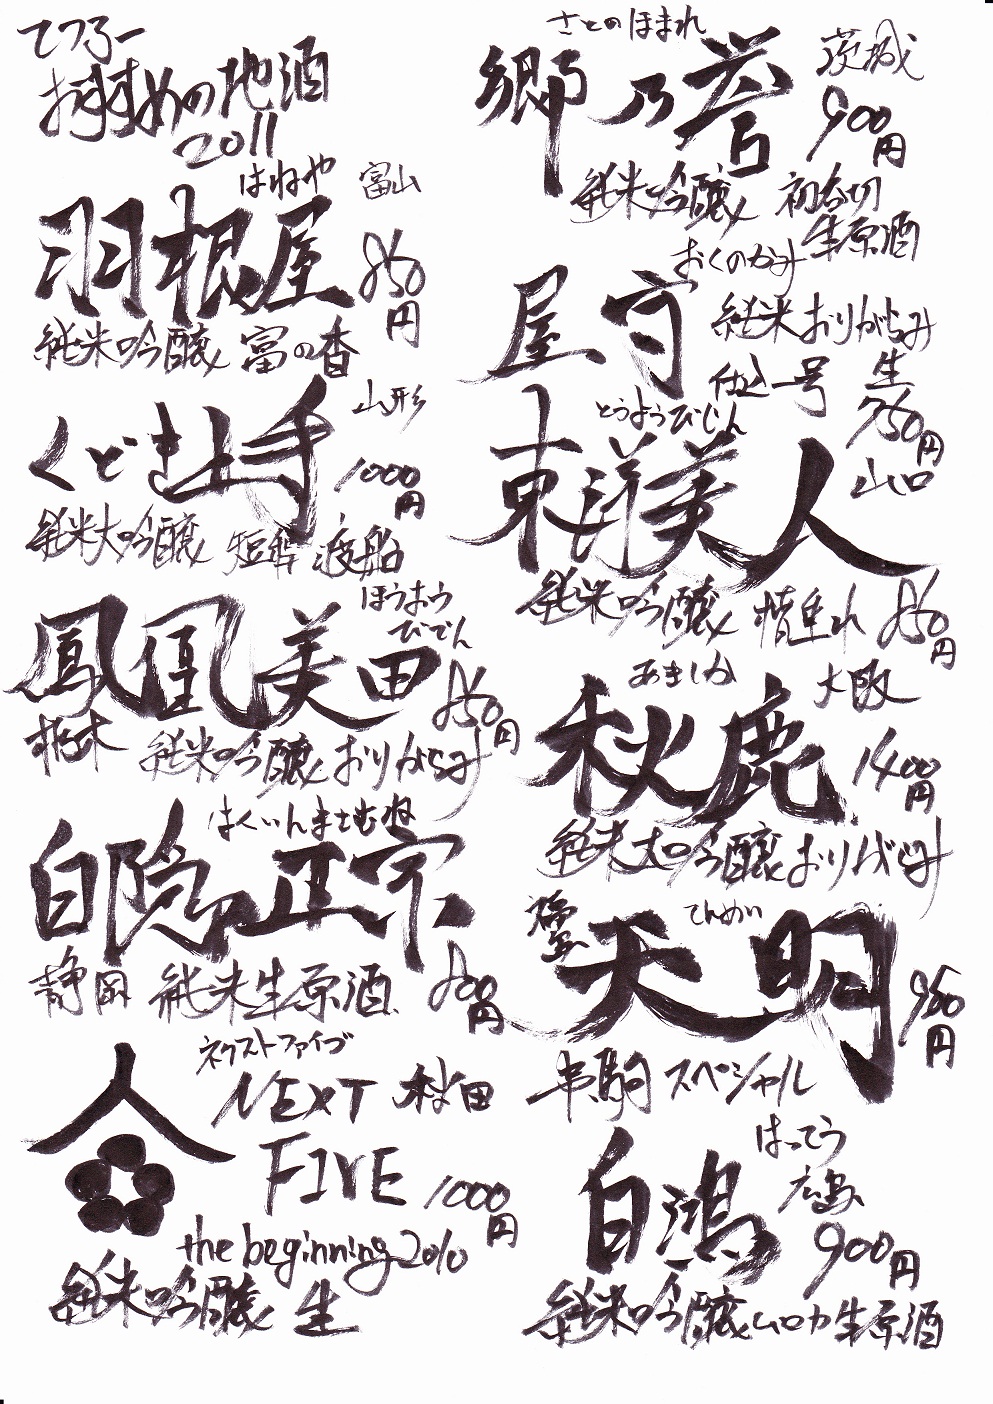 てつろー
おすすめの地酒
2011
はねや 富山
羽根屋 850円
純米吟醸 富の香
くどき上手 山形
1000円
純米大吟醸 短稈渡船
ほうおう
びでん
鳳凰美田 850円
栃木 純米吟醸 おりがらみ
はくいんまさむね
白隠正宗
静岡 純米生原酒 800円
ネクストファイブ
NEXT 秋田
FIVE 1000円
the beginning 2010
純米吟醸 生
さとのほまれ 茨城
郷乃誉 900円
純米吟醸 初呑切
生原酒
おくのかみ
屋守 純米おりがらみ
仕込一号 生
750円
とうようびじん
東洋美人 山口
純米吟醸 槽垂れ 850円
あきしか 大阪
秋鹿 1400円
純米大吟醸おりがらみ
てんめい
天明 950円
串駒 スペシャル
はってう
白鴻 広島
900円
純米吟醸ムロカ生原酒